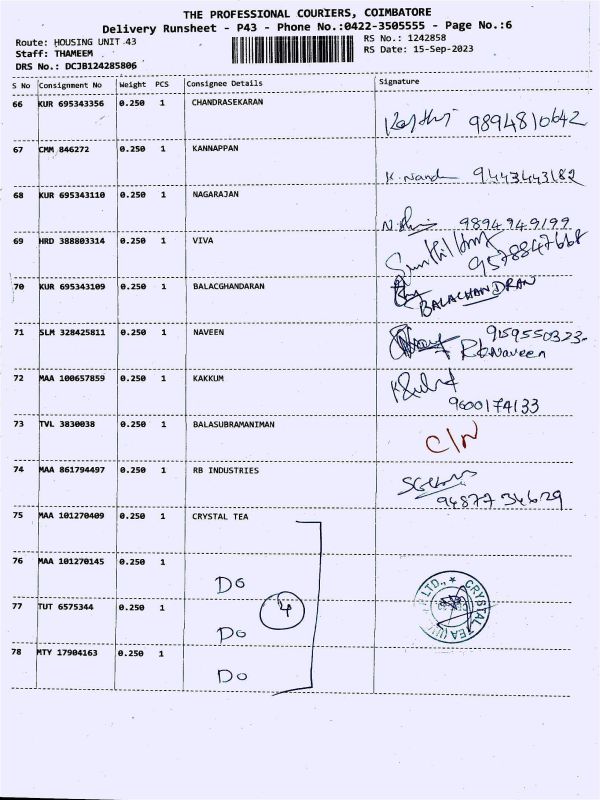 THE PROFESSIONAL COURIERS, COIMBATORE
Delivery Runsheet - P43 - Phone No.:0422-3505555 - Page No.:6
Route: HOUSING UNIT 43
RS No.: 1242858
Staff: THAMEEM
RS Date: 15-Sep-2023
DRS No.: DCJB124285806
S No Consignment No Weight PCS Consignee Details Signature
66 KUR 695343356 0.250 1 CHANDRASEKARAN
9894810642
67 CMM 846272 0.250 1 KANNAPPAN
K. Nand 9443443182
68 KUR 695343110 0.250 1 NAGARAJAN
9894949199
69 HRD 388803314 0.250 1 VIVA
9578847668
70 KUR 695343109 0.250 1 BALACGHANDARAN
BALACHANDRAN
71 SLM 328425811 0.250 1 NAVEEN
9159550323-
R.b.Naveen
72 MAA 100657859 0.250 1 KAKKUM
9600174133
73 TVL 3830038 0.250 1 BALASUBRAMANIMAN
C/N
74 MAA 861794497 0.250 1 RB INDUSTRIES
94877 34629
75 MAA 101270409 0.250 1 CRYSTAL TEA
76 MAA 101270145 0.250 1
Do
77 TUT 6575344 0.250 1
4
Do
78 MTY 17904163 0.250 1
Do
CRYSTAL TEA LTD.,